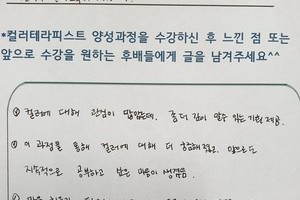 *컬러테라피스트 양성과정을 수강하신 후 느낀 점 또는
앞으로 수강을 원하는 후배들에게 글을 남겨주세요^^
컬러에 대해 관심이 많았는데, 좀더 깊이 알수 있는 기회 제공.
이 과정을 통해 컬러에 대해 더 궁금해졌고, 앞으로도
지속적으로 공부하고 싶은 마음이 생겼음.